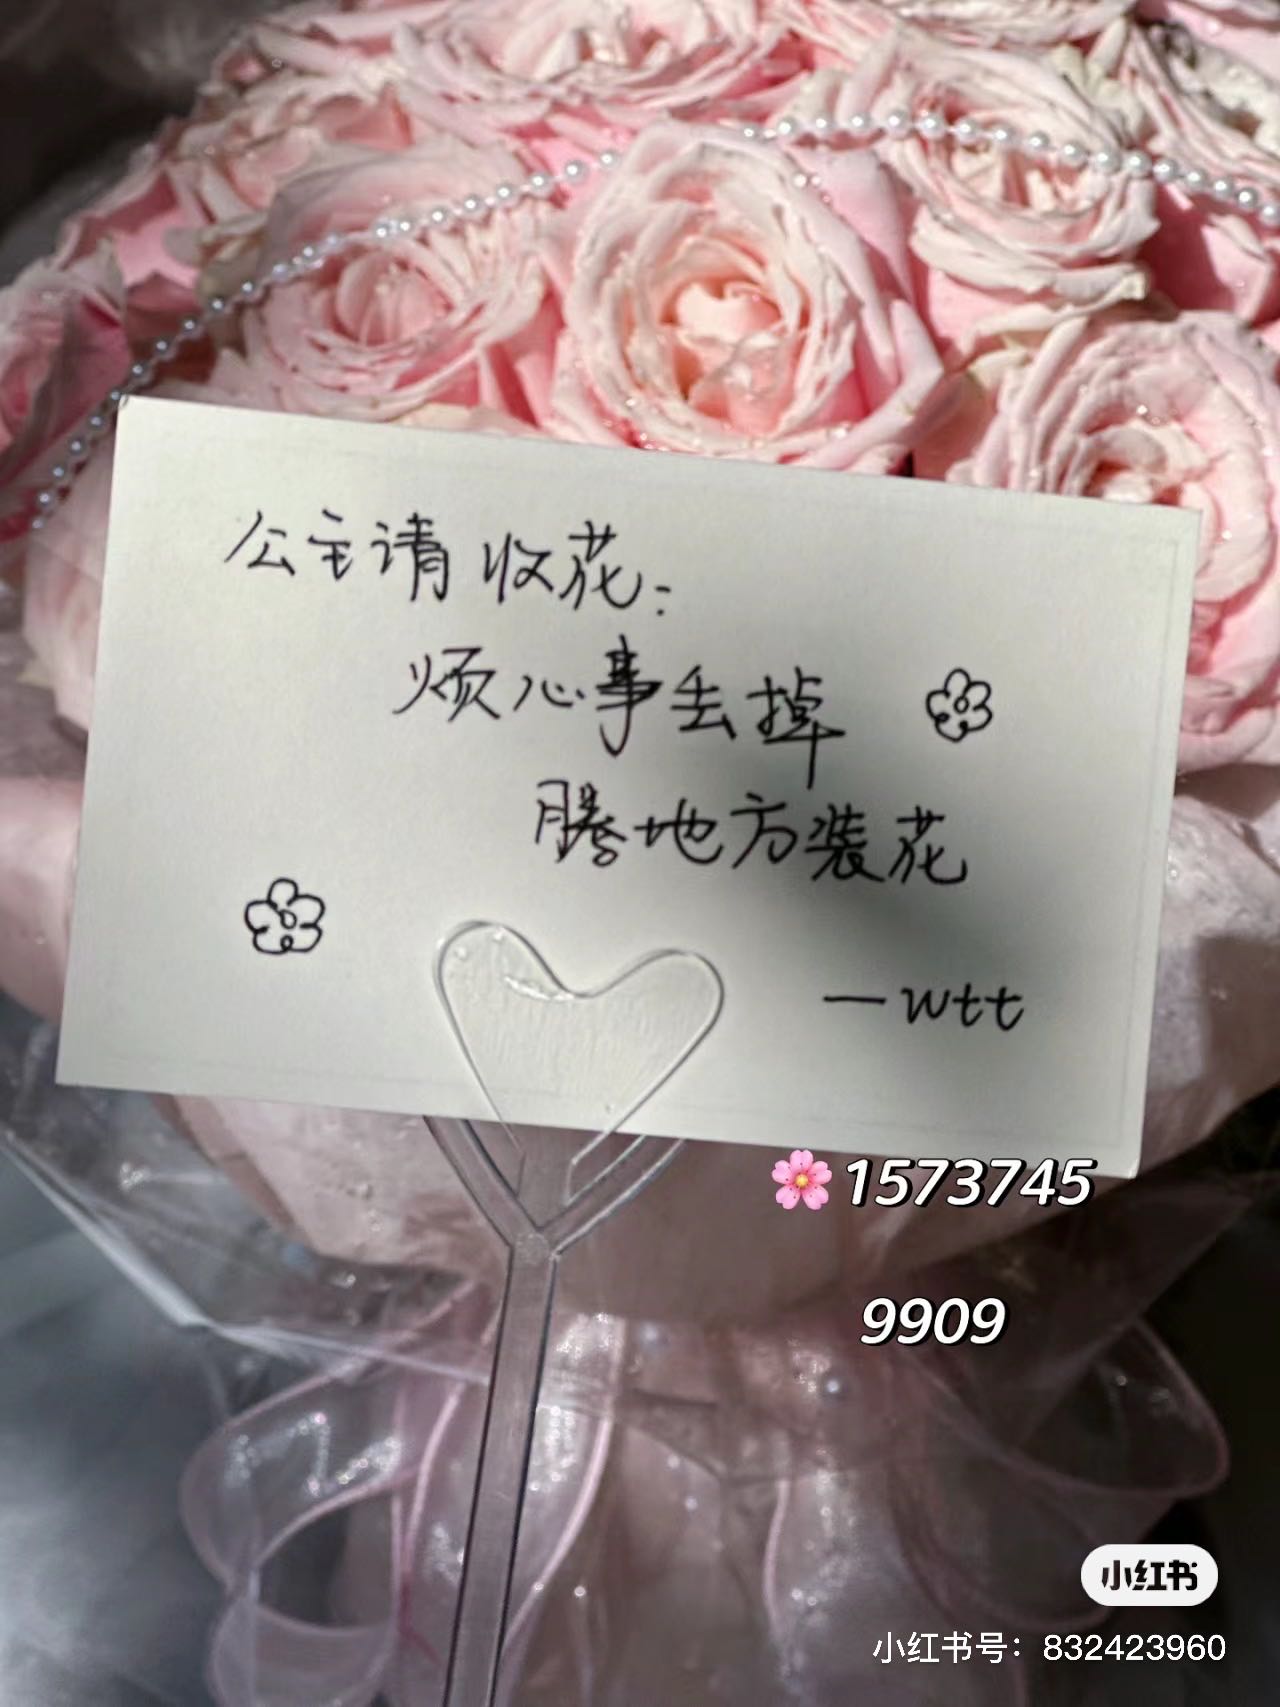 公主请收花：
烦心事丢掉
腾地方装花
—wtt
🌸1573745
9909
小红书
小红书号：832423960